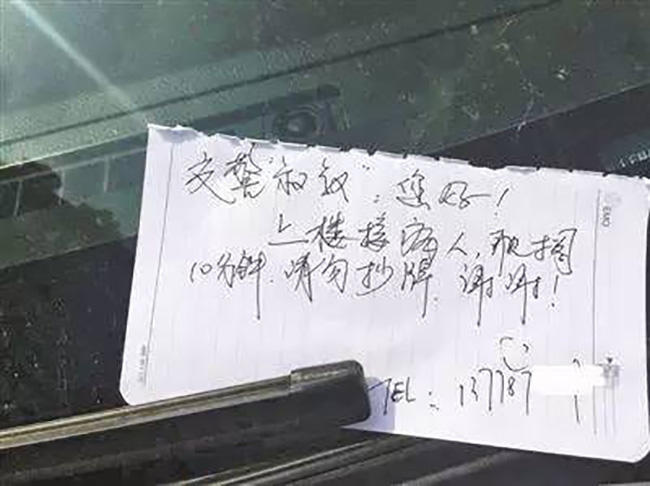 交警“叔叔”：您好！
上楼接病人，耽搁
10分钟．请勿抄牌．谢谢！
TEL：137787